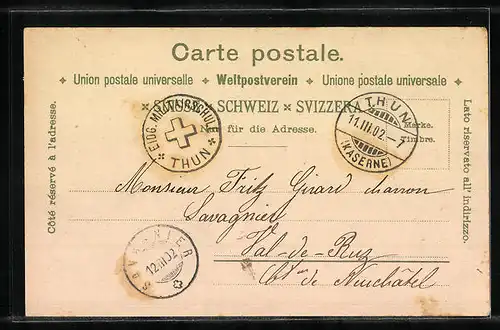 Carte postale.
Union postale universelle Weltpostverein Unione postale universale
SUISSE × SCHWEIZ × SVIZZERA
Nur für die Adresse.
Marke.
Timbre.
Côté réservé à l'adresse.
Lato riservato all' indirizzo.
EIDG. MILITÄRSCHULE
THUN
THUN
11.III.02.-7
(KASERNE)
Monsieur Fritz Girard charron
Savagnier
Val-de-Ruz
Ct. de Neuchâtel
SAVAGNIER
12.III.02